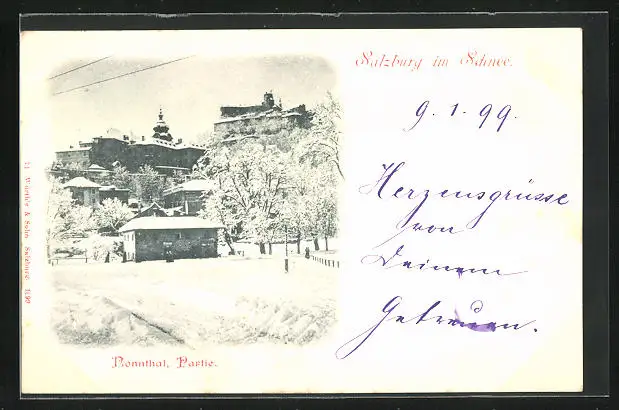 Salzburg im Schnee.
9. 1. 99.
Herzensgrüsse
von
Deinem
Getreuen.
Nonnthal, Partie.
Würthle & Sohn Salzburg